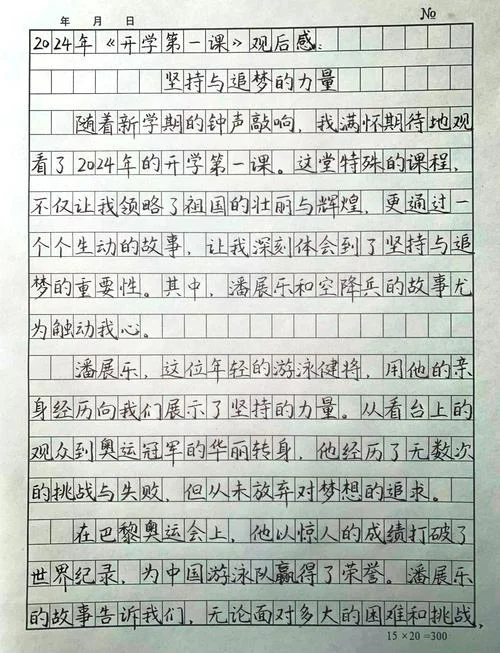 年 月 日 №
2024年《开学第一课》观后感：
坚持与追梦的力量
随着新学期的钟声敲响，我满怀期待地观
看了2024年的开学第一课。这堂特殊的课程，
不仅让我领略了祖国的壮丽与辉煌，更通过一
个个生动的故事，让我深刻体会到了坚持与追
梦的重要性。其中，潘展乐和空降兵的故事尤
为触动我心。
潘展乐，这位年轻的游泳健将，用他的亲
身经历向我们展示了坚持的力量。从看台上的
观众到奥运冠军的华丽转身，他经历了无数次
的挑战与失败，但从未放弃对梦想的追求。
在巴黎奥运会上，他以惊人的成绩打破了
世界纪录，为中国游泳队赢得了荣誉。潘展乐
的故事告诉我们，无论面对多大的困难和挑战，
15×20=300